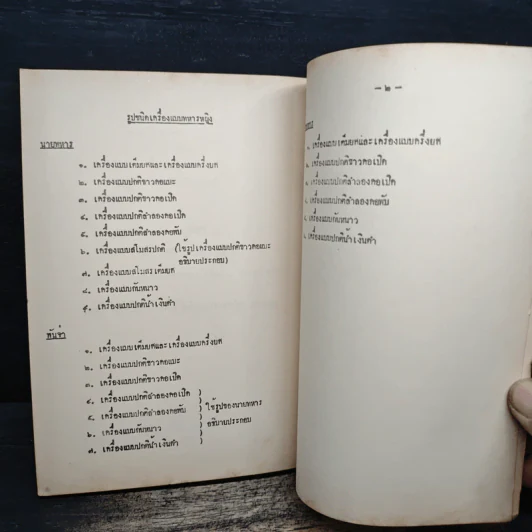 รูปชนิดเครื่องแบบทหารหญิง
นายทหาร
๑. เครื่องแบบเต็มยศและเครื่องแบบครึ่งยศ
๒. เครื่องแบบปกติขาวคอแบะ
๓. เครื่องแบบปกติขาวคอเปิด
๔. เครื่องแบบปกติลำลองคอเปิด
๕. เครื่องแบบปกติลำลองคอพับ
๖. เครื่องแบบสโมสรปกติ (ใช้รูปเครื่องแบบปกติขาวคอแบะ
อธิบายประกอบ)
๗. เครื่องแบบสโมสรเต็มยศ
๘. เครื่องแบบกันหนาว
๙. เครื่องแบบปกติน้ำเงินดำ
พันจ่า
๑. เครื่องแบบเต็มยศและเครื่องแบบครึ่งยศ
๒. เครื่องแบบปกติขาวคอแบะ
๓. เครื่องแบบปกติขาวคอเปิด
๔. เครื่องแบบปกติลำลองคอเปิด )
๕. เครื่องแบบปกติลำลองคอพับ ) ใช้รูปของนายทหาร
๖. เครื่องแบบกันหนาว ) อธิบายประกอบ
๗. เครื่องแบบปกติน้ำเงินดำ )
- ๒ -
เครื่องแบบเต็มยศและเครื่องแบบครึ่งยศ
เครื่องแบบปกติขาวคอเปิด
เครื่องแบบปกติลำลองคอเปิด
เครื่องแบบปกติลำลองคอพับ
เครื่องแบบกันหนาว
เครื่องแบบปกติน้ำเงินดำ